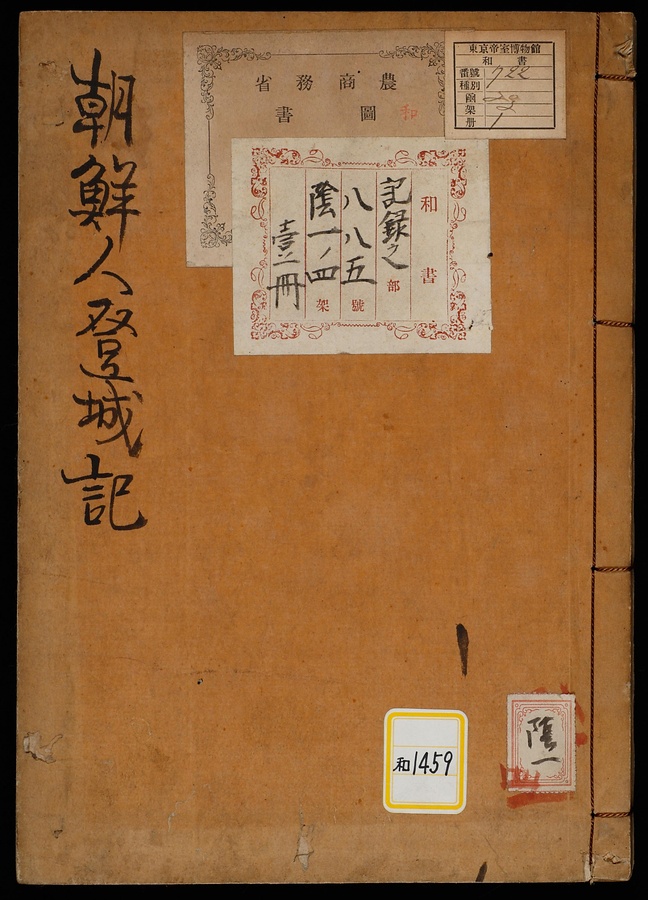 朝鮮人登城記
農商務省
圖書
和
東京帝室博物館
和書
番號 722
種別
函
架 2
册 1
和書
記録之部
八八五號
陰一ノ四架
壹冊
和1459
陰一